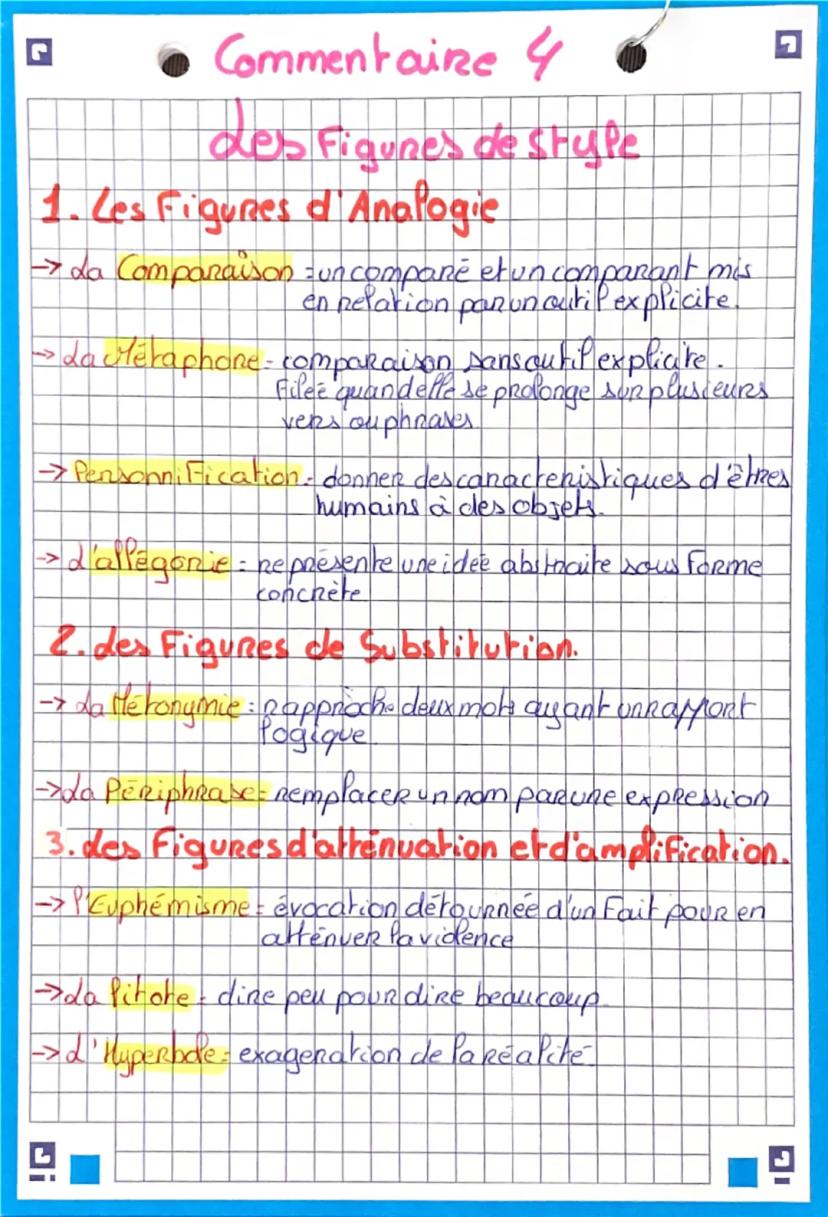 Commentaire 4
Les Figures de style
1. Les Figures d'Analogie
-> La Comparaison = un comparé et un comparant mis
en relation par un outil explicite.
-> La Métaphore = comparaison sans outil explicite.
Fileé quand elle se prolonge sur plusieurs
vers ou phrases
-> Personnification = donner des caracteristiques d'êtres
humains à des objets.
-> L'allégorie = représente une idée abstraite sous forme
concrète
2. Les Figures de Substitution.
-> La Métonymie = rapproche deux mots ayant un rapport
logique
-> La Périphrase = remplacer un nom par une expression
3. Les Figures d'atténuation et d'amplification.
-> l'Euphémisme = évocation détournée d'un fait pour en
atténuer la violence
-> La litote = dire peu pour dire beaucoup
-> L'Hyperbole = exageration de la réalité